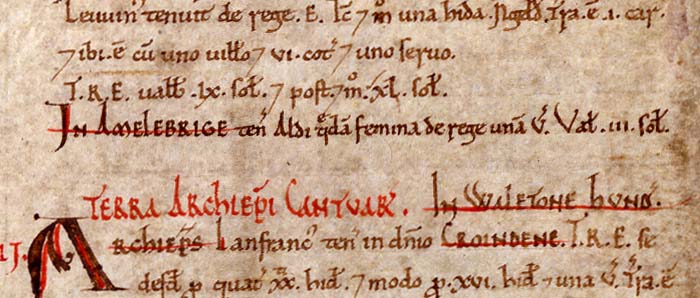 Leuuin' tenuit de rege .E. Tc̄ ⁊ m̊ una hida. Ngeld̄. Tr̄a.ē.i. car.
⁊ ibi.ē cū uno uilło ⁊ vi. cot' ⁊ uno seruo.
T.R.E. ualb̄ .lx. sol̄. ⁊ post. ⁊ m̊. xl. sol̄.
IN AMELEBRIGE ten' Aldi q̄dā femina de rege unā v̄. Val̄. iii. sol̄.
TERRA ARCHIEP̄I CANTUAR̄. IN WALETONE HUND̄.
IJ. ARCHIEP̄S Lanfranc' ten' in dn̄io CROINDENE. T.R.E. se
defd̄ p quat' xx. hid̄. ⁊ modo p. xvi. hid̄ ⁊ una v̄. Tr̄a.ē